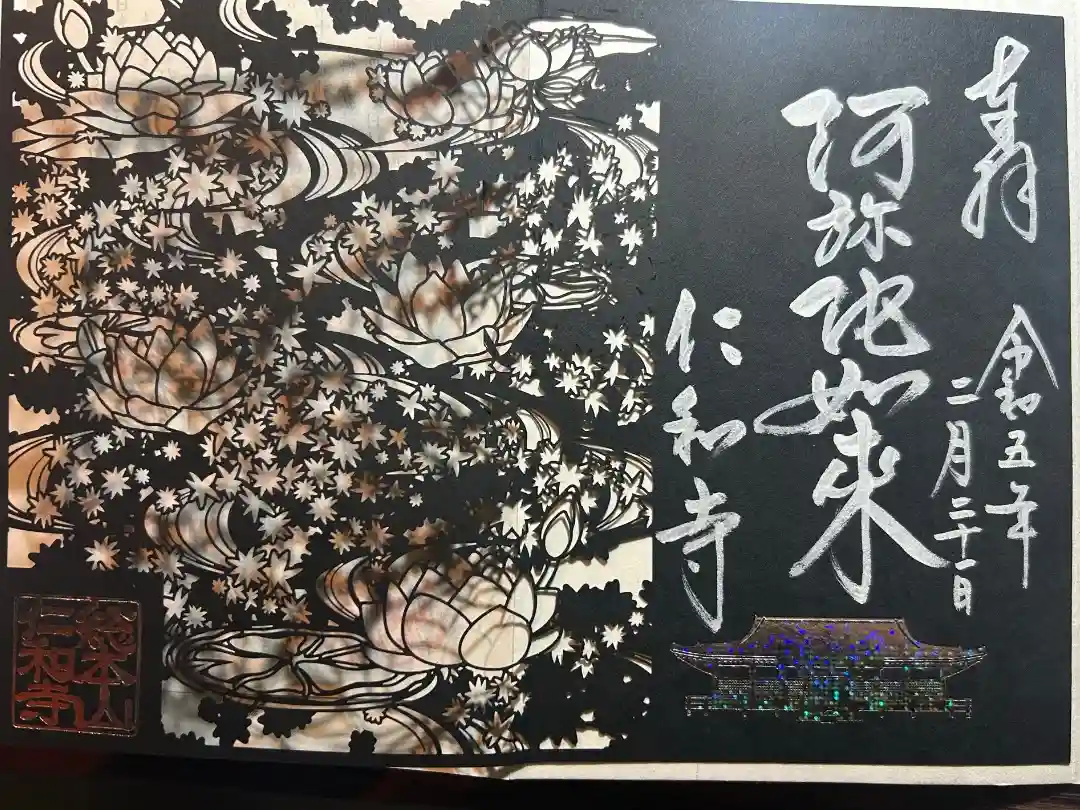 奉拝
令和五年
二月二十一日
阿弥陀如来
仁和寺
総本山
仁和寺